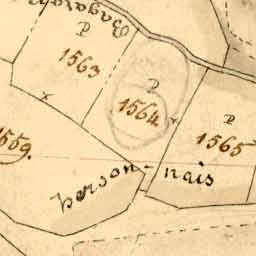 P
1563
P
1564
P
1565
1559.
berson-nais